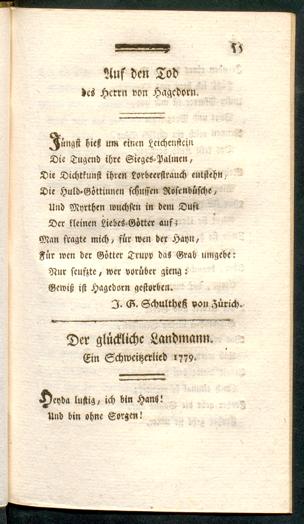 55
Auf den Tod
des Herrn von Hagedorn.
Jüngst hieß um einen Leichenstein
Die Tugend ihre Sieges-Palmen,
Die Dichtkunst ihren Lorbeerstrauch entstehn,
Die Huld-Göttinnen schuffen Rosenbüsche,
Und Myrthen wuchsen in dem Duft
Der kleinen Liebes-Götter auf;
Man fragte mich, für wen der Hayn,
Für wen der Götter Trupp das Grab umgebe:
Nur seufzte, wer vorüber gieng:
Gewiß ist Hagedorn gestorben.
J. G. Schultheß von Zürich.
Der glückliche Landmann.
Ein Schweitzerlied 1779.
Heyda lustig, ich bin Hans!
Und bin ohne Sorgen!